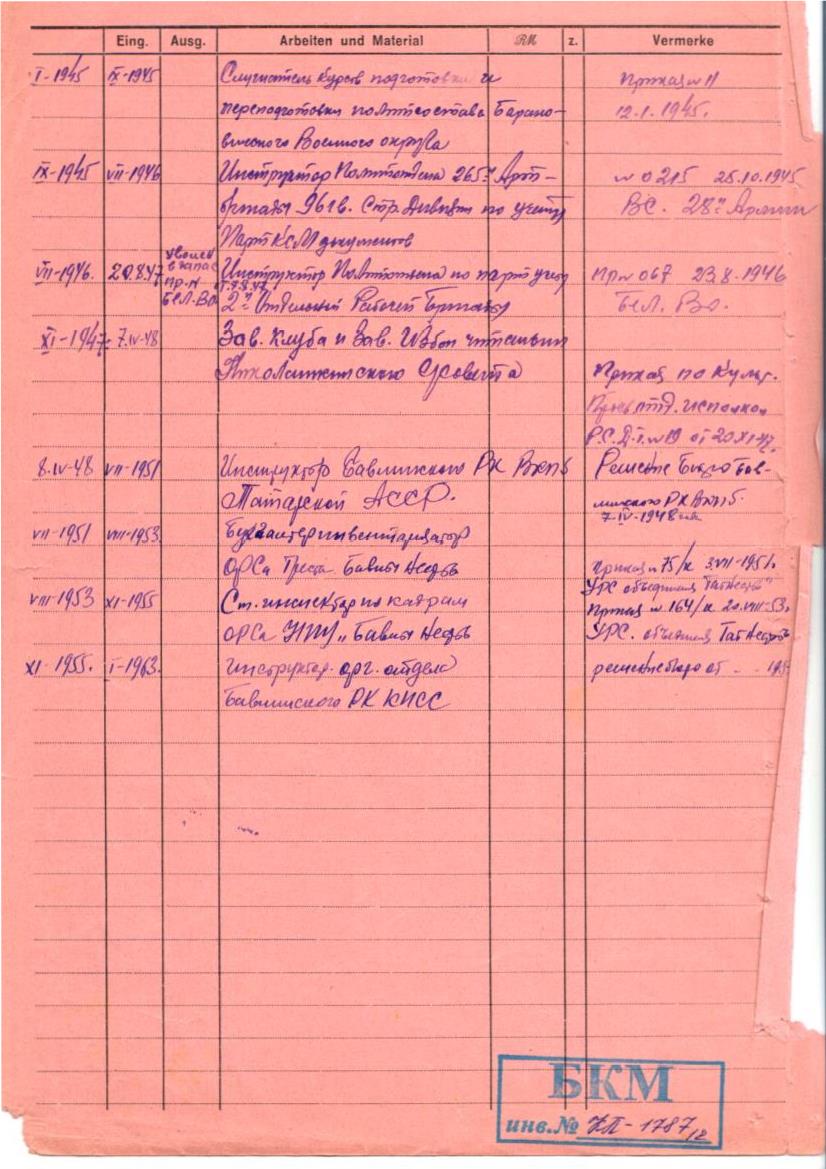 Eing. Ausg. Arbeiten und Material RM z. Vermerke
I-1945 IX-1945 Слушатель курсов подготовки и Приказ № 11
переподготовки политсостава Барано- 12.1.1945.
вического Военного округа
IX-1945 VII-1946 Инструктор Политотдела 265й Арт- № 0215 25.10.1945
бригады 96 гв. Стр. Дивизии по учету ВС. 28й Армии
Парт КСМ документов
уволен
в запас
VII-1946. 20.8.47 пр. № Инструктор Политотдела по парт учету Пр № 067 23.8.1946
Бел. ВО 2й Отдельной Рабочей Бригады Бел. Во.
XI-1947 7.IV-48 Зав. Клуба и Зав. Избой читальни
Николашкинского Совета Приказ по Культ.
отд. исполком
Р.С.Д.Т. № 19 от 20 XI-47.
8.IV-48 VII-1951 Инструктор Бавлинского РК ВКПб Решение Бюро Бав-
Татарской АССР. линского РК ВКП б.
7.IV-1948
VII-1951 VIII-1953. Бухгалтер инвентаризатор
ОРСа Треста Бавлы Нефть Приказ № 75/к 3.VII-1951.
УРС объединения "Татнефть"
VIII-1953 XI-1955 Ст. инспектор по кадрам Приказ № 164/к 20.VIII-53.
ОРСа НПУ „Бавлы Нефть УРС. объединения Татнефть
XI-1955. I-1963. инструктор. орг. отдела решение бюро от
Бавлинского РК КПСС
БКМ
инв.№ КП-1787/12